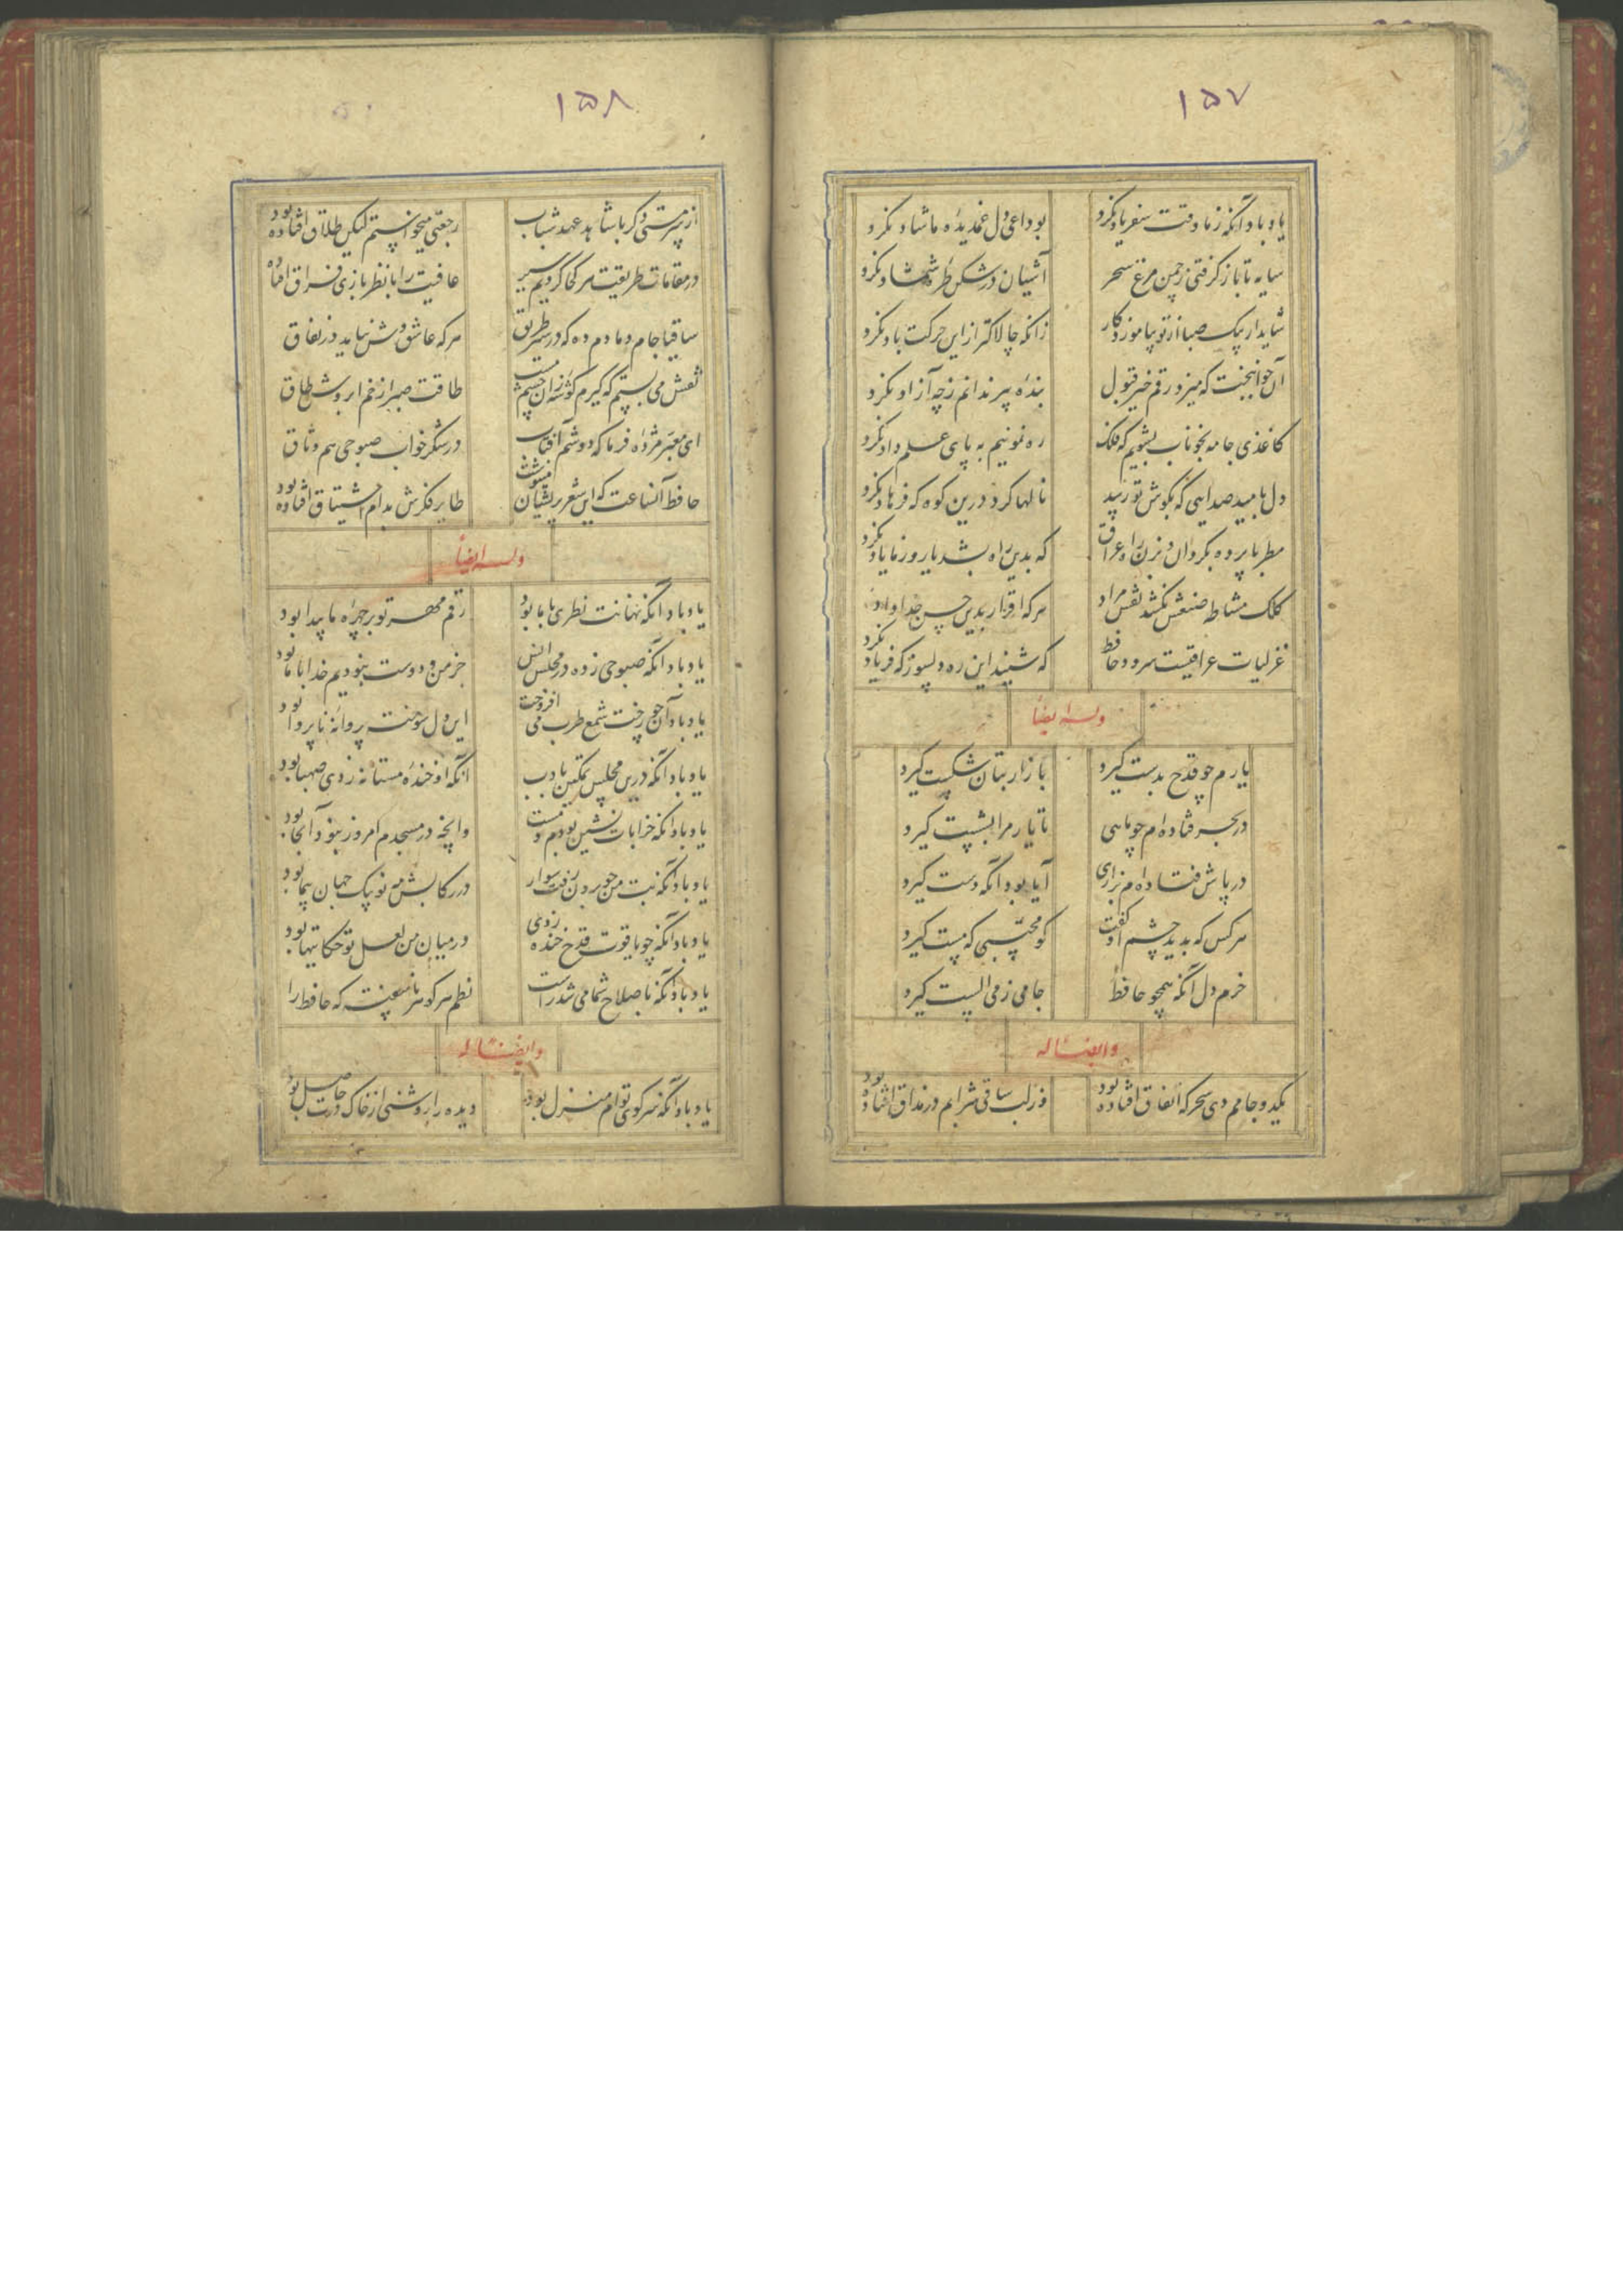 ۱۵۷
یاد باد آنکه ز ما وقت سفر یاد نکرد بوداعی دل غمدیده ما شاد نکرد
سایه تا باز گرفتی ز چمن مرغ سحر آشیان در شکن طره شمشاد نکرد
شاید ار پیک صبا از تو بیاموزد کار زانکه چالاکتر از این حرکت باد نکرد
آن جوانبخت که میزد رقم خیر قبول بنده پیر ندانم ز چه آزاد نکرد
کاغذی جامه بخوناب بشویم که فلک ره نمونیم به پای علم داد نکرد
دل بامید صدایی که بگوش تو رسد نالها کرد درین کوه که فرهاد نکرد
مطربا پرده بگردان و بزن راه عراق که بدین راه بشد یار و ز ما یاد نکرد
کلک مشاطه صنعش نکشد نقش مراد هر که اقرار بدین حسن خداداد نکرد
غزلیات عراقیست سرود حافظ که شنید این ره دلسوز که فریاد نکرد
وله ایضاً
یارم چو قدح بدست گیرد بازار بتان شکست گیرد
در بحر فتاده ام چو ماهی تا یار مرا بشست گیرد
در پاش فتاده ام بزاری آیا بود آنکه دست گیرد
هر کس که بدید چشم او گفت کو محتسبی که مست گیرد
خرم دل آنکه همچو حافظ جامی ز می الست گیرد
وایضاً له
یکدو جامم دی سحرگه اتفاق افتاده بود وز لب ساقی شرابم در مذاق افتاده بود
۱۵۸
از سر مستی دگر با شاهد عهد شباب رجعتی میخواستم لیکن طلاق افتاده بود
در مقامات طریقت هر کجا کردیم سیر عافیت را با نظر بازی فراق افتاده
ساقیا جام دمادم ده که در سیر طریق هر که عاشق وش نیاید در نفاق
نقش می بستم که گیرم گوشه زان چشم مست طاقت صبر از خم ابروش طاق
ای معبر مژده فرما که دوشم آفتاب در شکر خواب صبوحی هم وثاق
حافظ آنساعت که این شعر پریشان مینوشت طایر فکرش بدام اشتیاق افتاده بود
وله ایضاً
یاد باد آنکه نهانت نظری با ما بود رقم مهر تو بر چهره ما پیدا بود
یاد باد آنکه صبوحی زده در مجلس انس جز من و دوست نبودیم خدا با ما بود
یاد باد آن چو رخت شمع طرب می افروخت این دل سوخته پروانه ناپروا بود
یاد باد آنکه درین مجلس تمکین بادب آنکه او خنده مستانه زدی صهبا بود
یاد باد آنکه خرابات نشین بودم و مست وآنچه در مسجدم امروز نبود آنجا بود
یاد باد آنکه بت من چو برون رفت سوار در رکابش مه نو پیک جهان پیما بود
یاد باد آنکه چو یاقوت قدح خنده زدی در میان من لعل تو حکایتها بود
یاد باد آنکه باصلاح شما می شد راست نظم هر گوهر ناسفته که حافظ را
وایضاً له
یاد باد آنکه سر کوی توام منزل بود دیده را روشنی از خاک درت حاصل بود